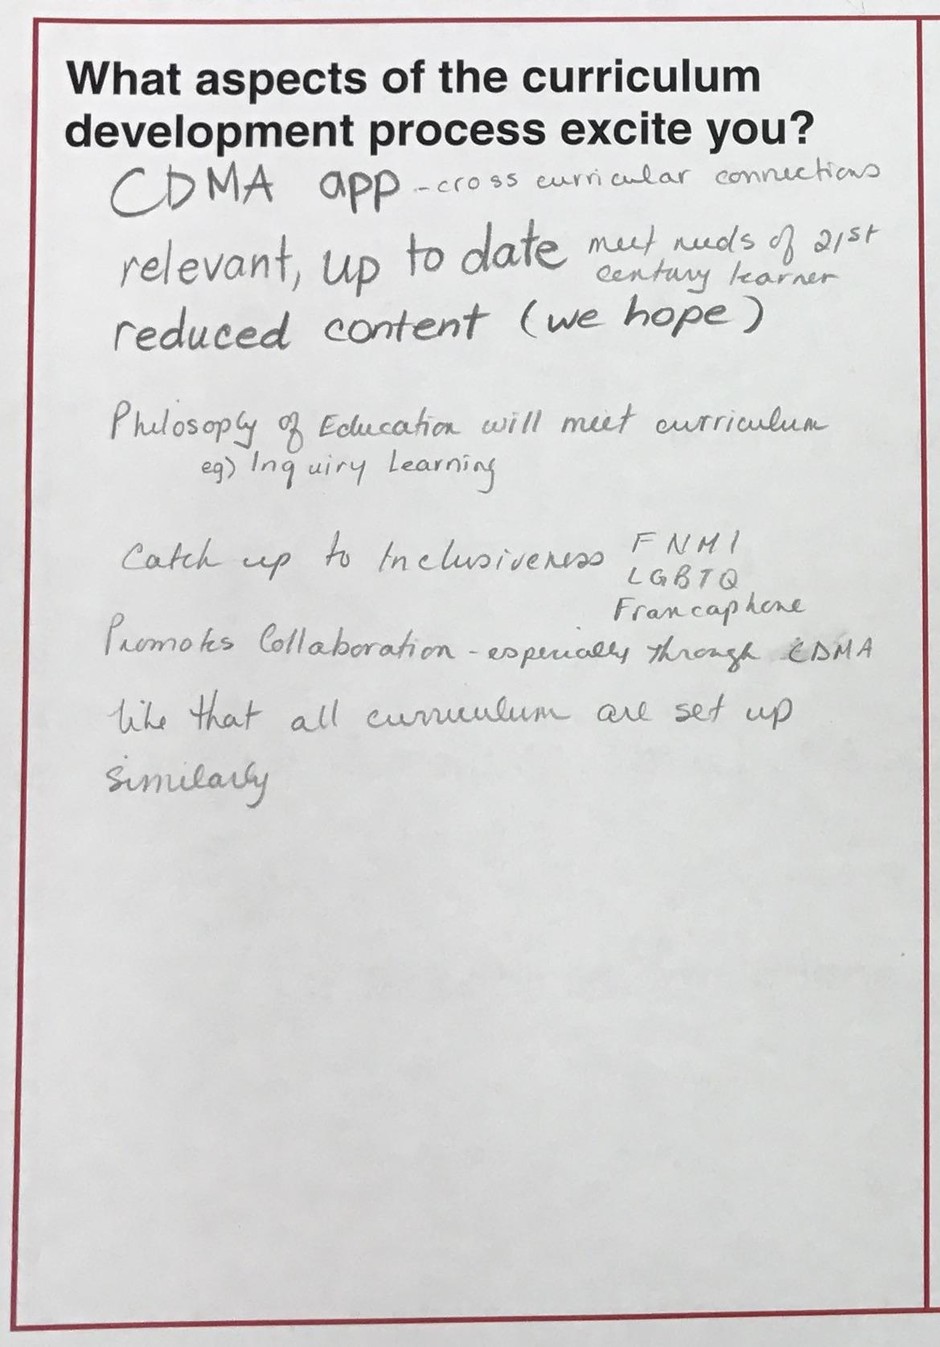 What aspects of the curriculum
development process excite you?
CDMA app - cross curricular connections
relevant, up to date meet needs of 21st
century learner
reduced content (we hope)
Philosophy of Education will meet curriculum
eg) Inquiry Learning
Catch up to Inclusiveness FNMI
LGBTQ
Francaphone
Promotes Collaboration - especially through CDMA
like that all curriculum are set up
similarly